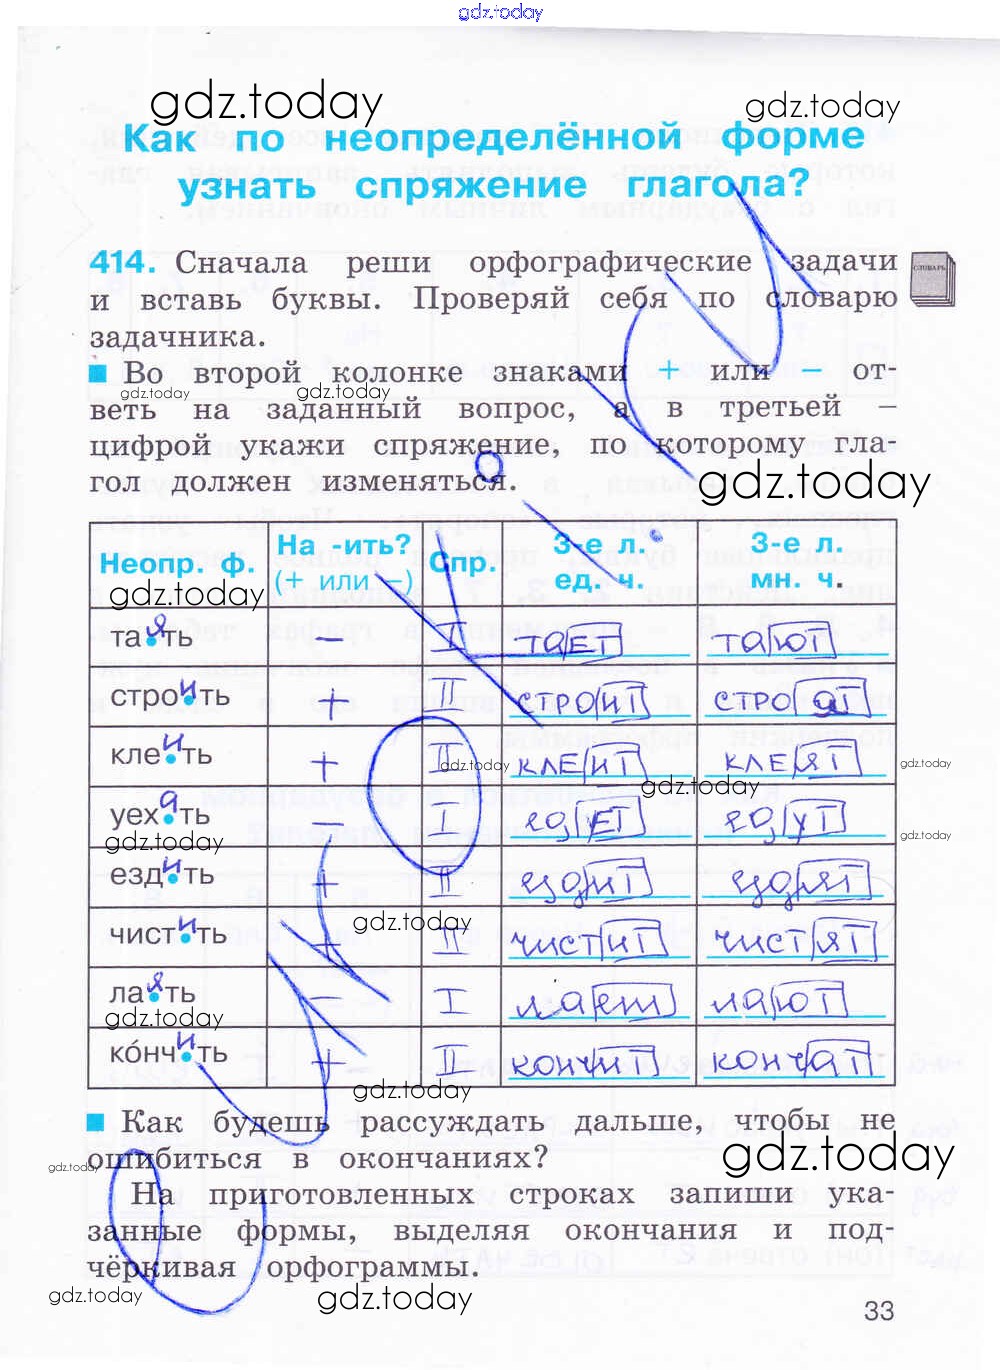 gdz.today
gdz.today
gdz.today
Как по неопределённой форме
узнать спряжение глагола?
414. Сначала реши орфографические задачи
и вставь буквы. Проверяй себя по словарю
задачника.
СЛОВАРЬ
Во второй колонке знаками + или − от-
gdz.today gdz.today
веть на заданный вопрос, а в третьей –
цифрой укажи спряжение, по которому гла-
гол должен изменяться.
gdz.today
Неопр. ф. На -ить? (+ или −) Спр. 3-е л. ед. ч. 3-е л. мн. ч.
gdz.today
таять − I тает тают
строить + II строит строят
клеить + II клеит клеят
gdz.today gdz.today gdz.today
уехать − I едет едут
gdz.today gdz.today
ездить + II ездит ездят
gdz.today
чистить + II чистит чистят
лаять − I лает лают
gdz.today
ко́нчить + II кончит кончат
gdz.today
Как будешь рассуждать дальше, чтобы не
ошибиться в окончаниях?
gdz.today gdz.today
На приготовленных строках запиши ука-
занные формы, выделяя окончания и под-
чёркивая орфограммы.
gdz.today gdz.today
33